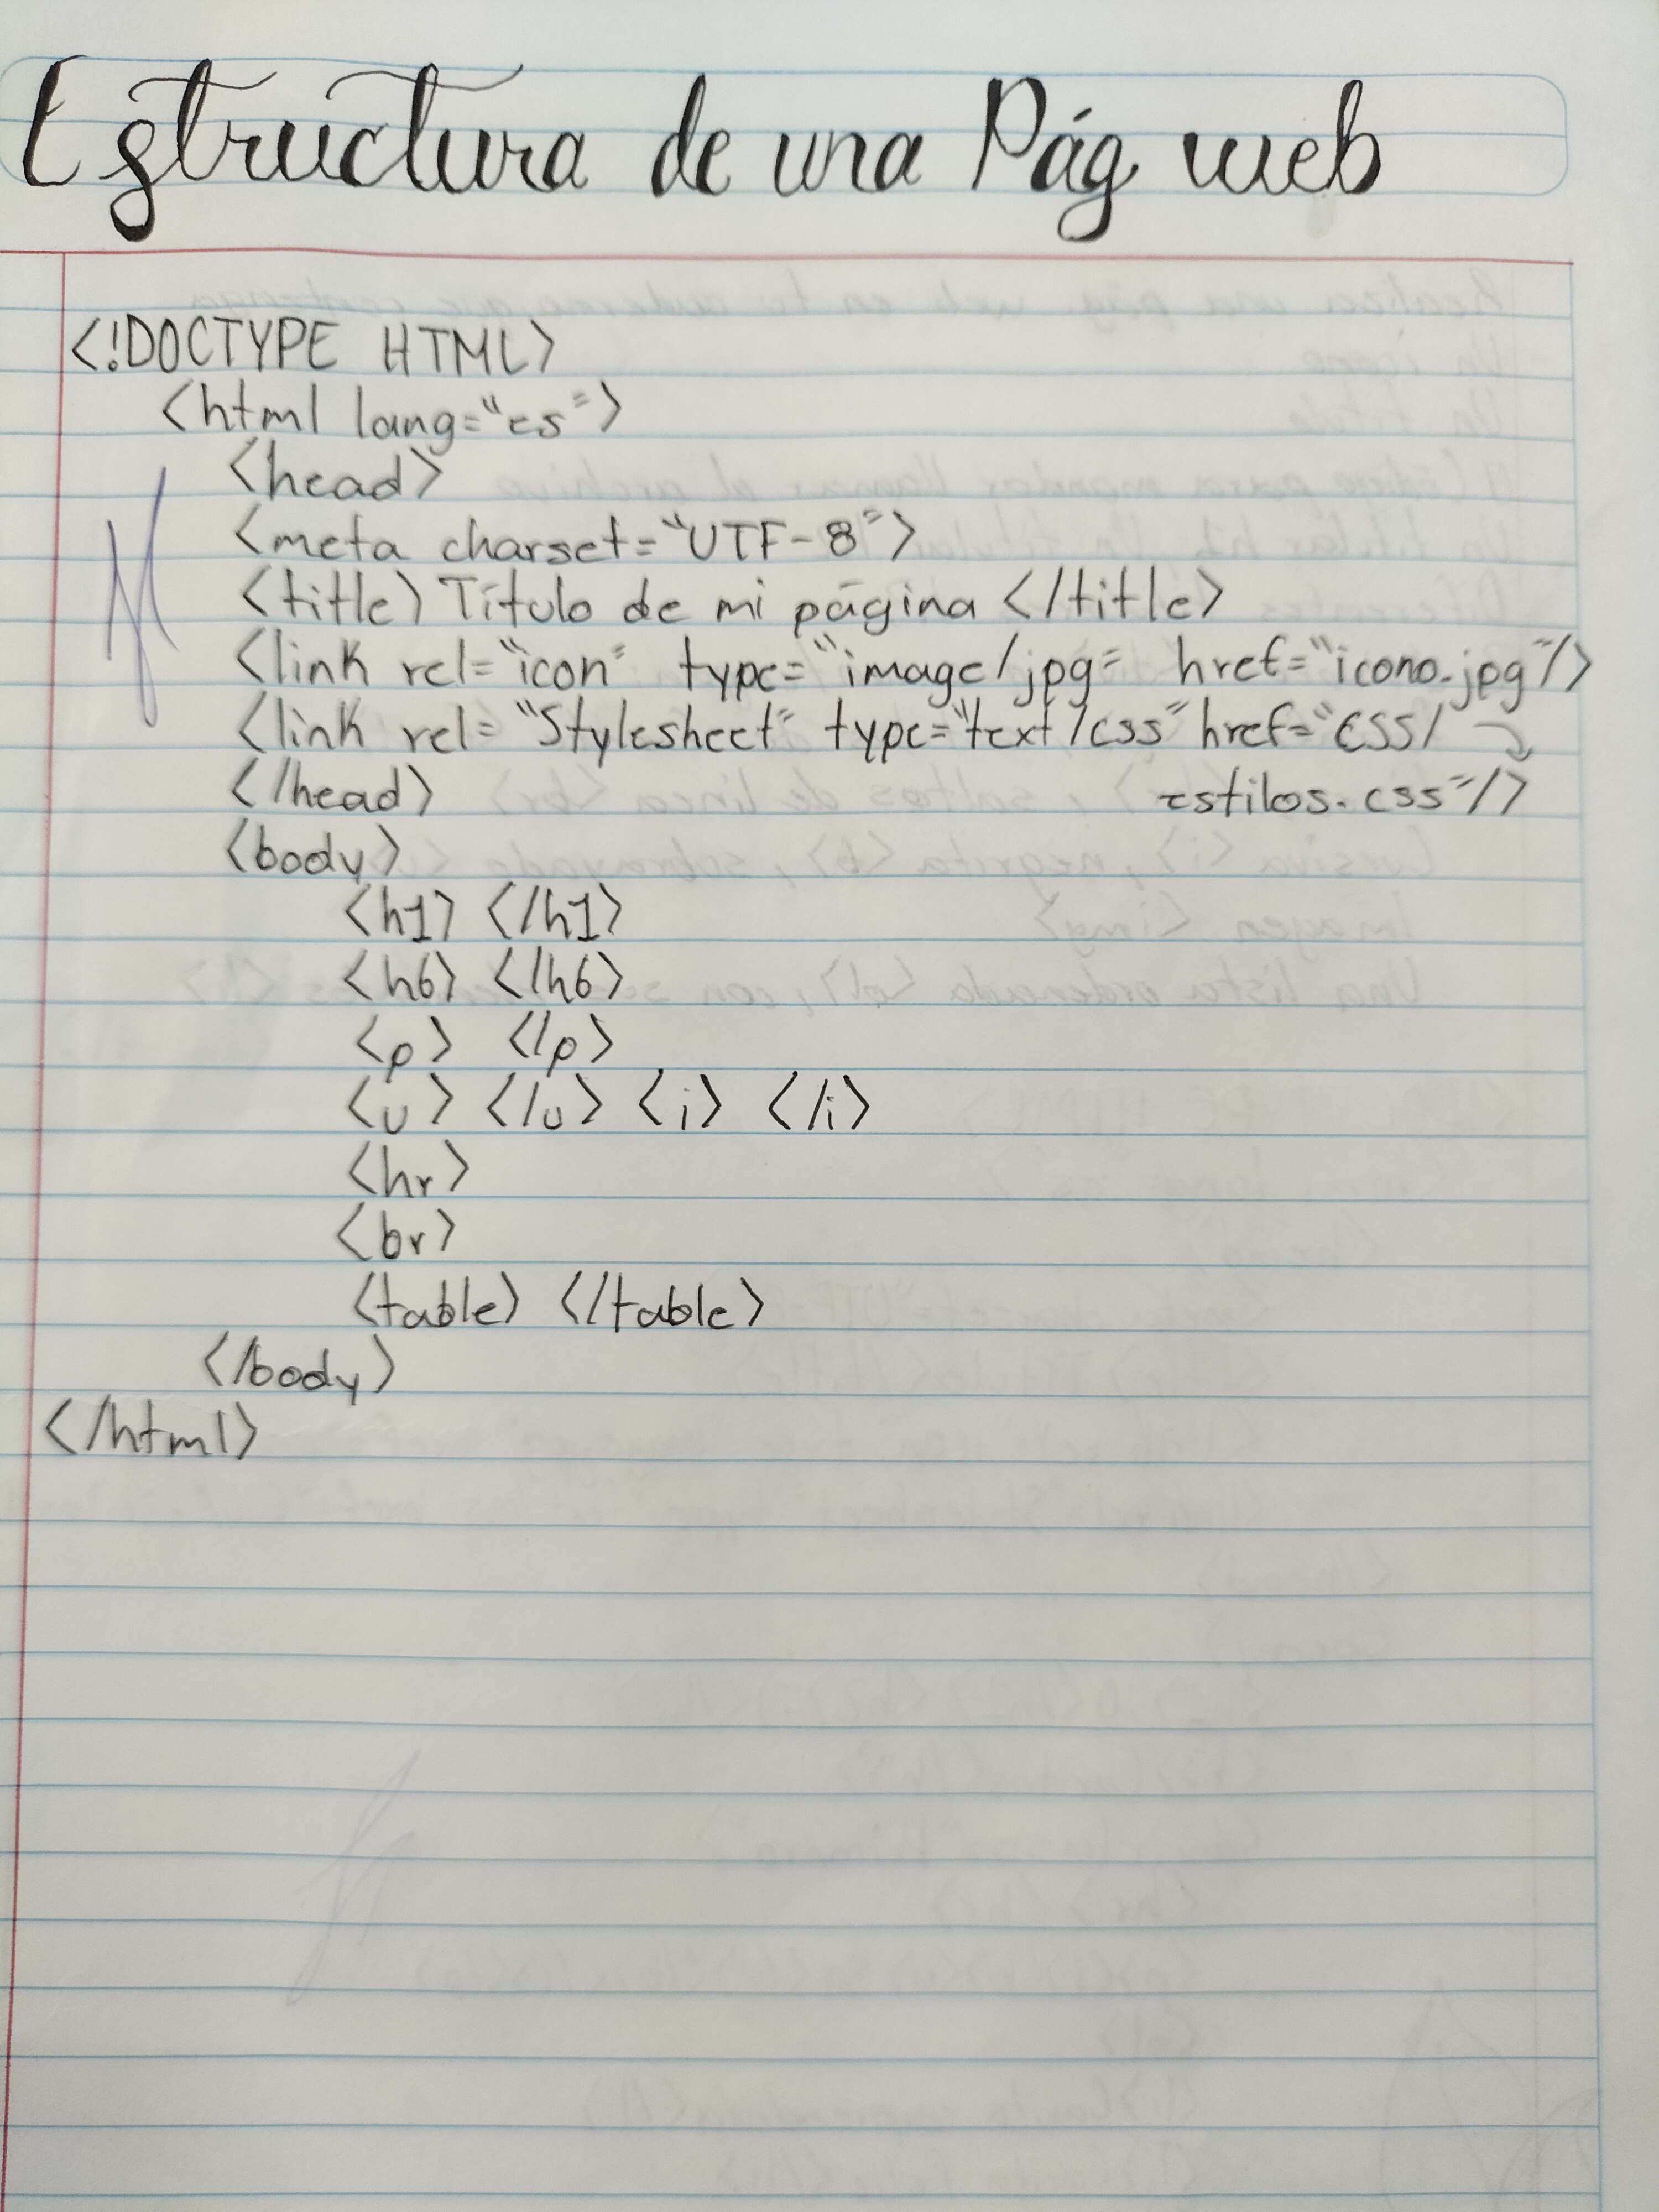 Estructura de una Pág web
<!DOCTYPE HTML>
<html lang="es">
<head>
<meta charset="UTF-8">
<title> Título de mi página </title>
<link rel="icon" type="image/jpg" href="icono.jpg"/>
<link rel="Stylesheet" type="text/css" href="CSS/
</head> estilos.css"/>
<body>
<h1> </h1>
<h6> </h6>
<p> </p>
<u> </u> <i> </i>
<hr>
<br>
<table> </table>
</body>
</html>